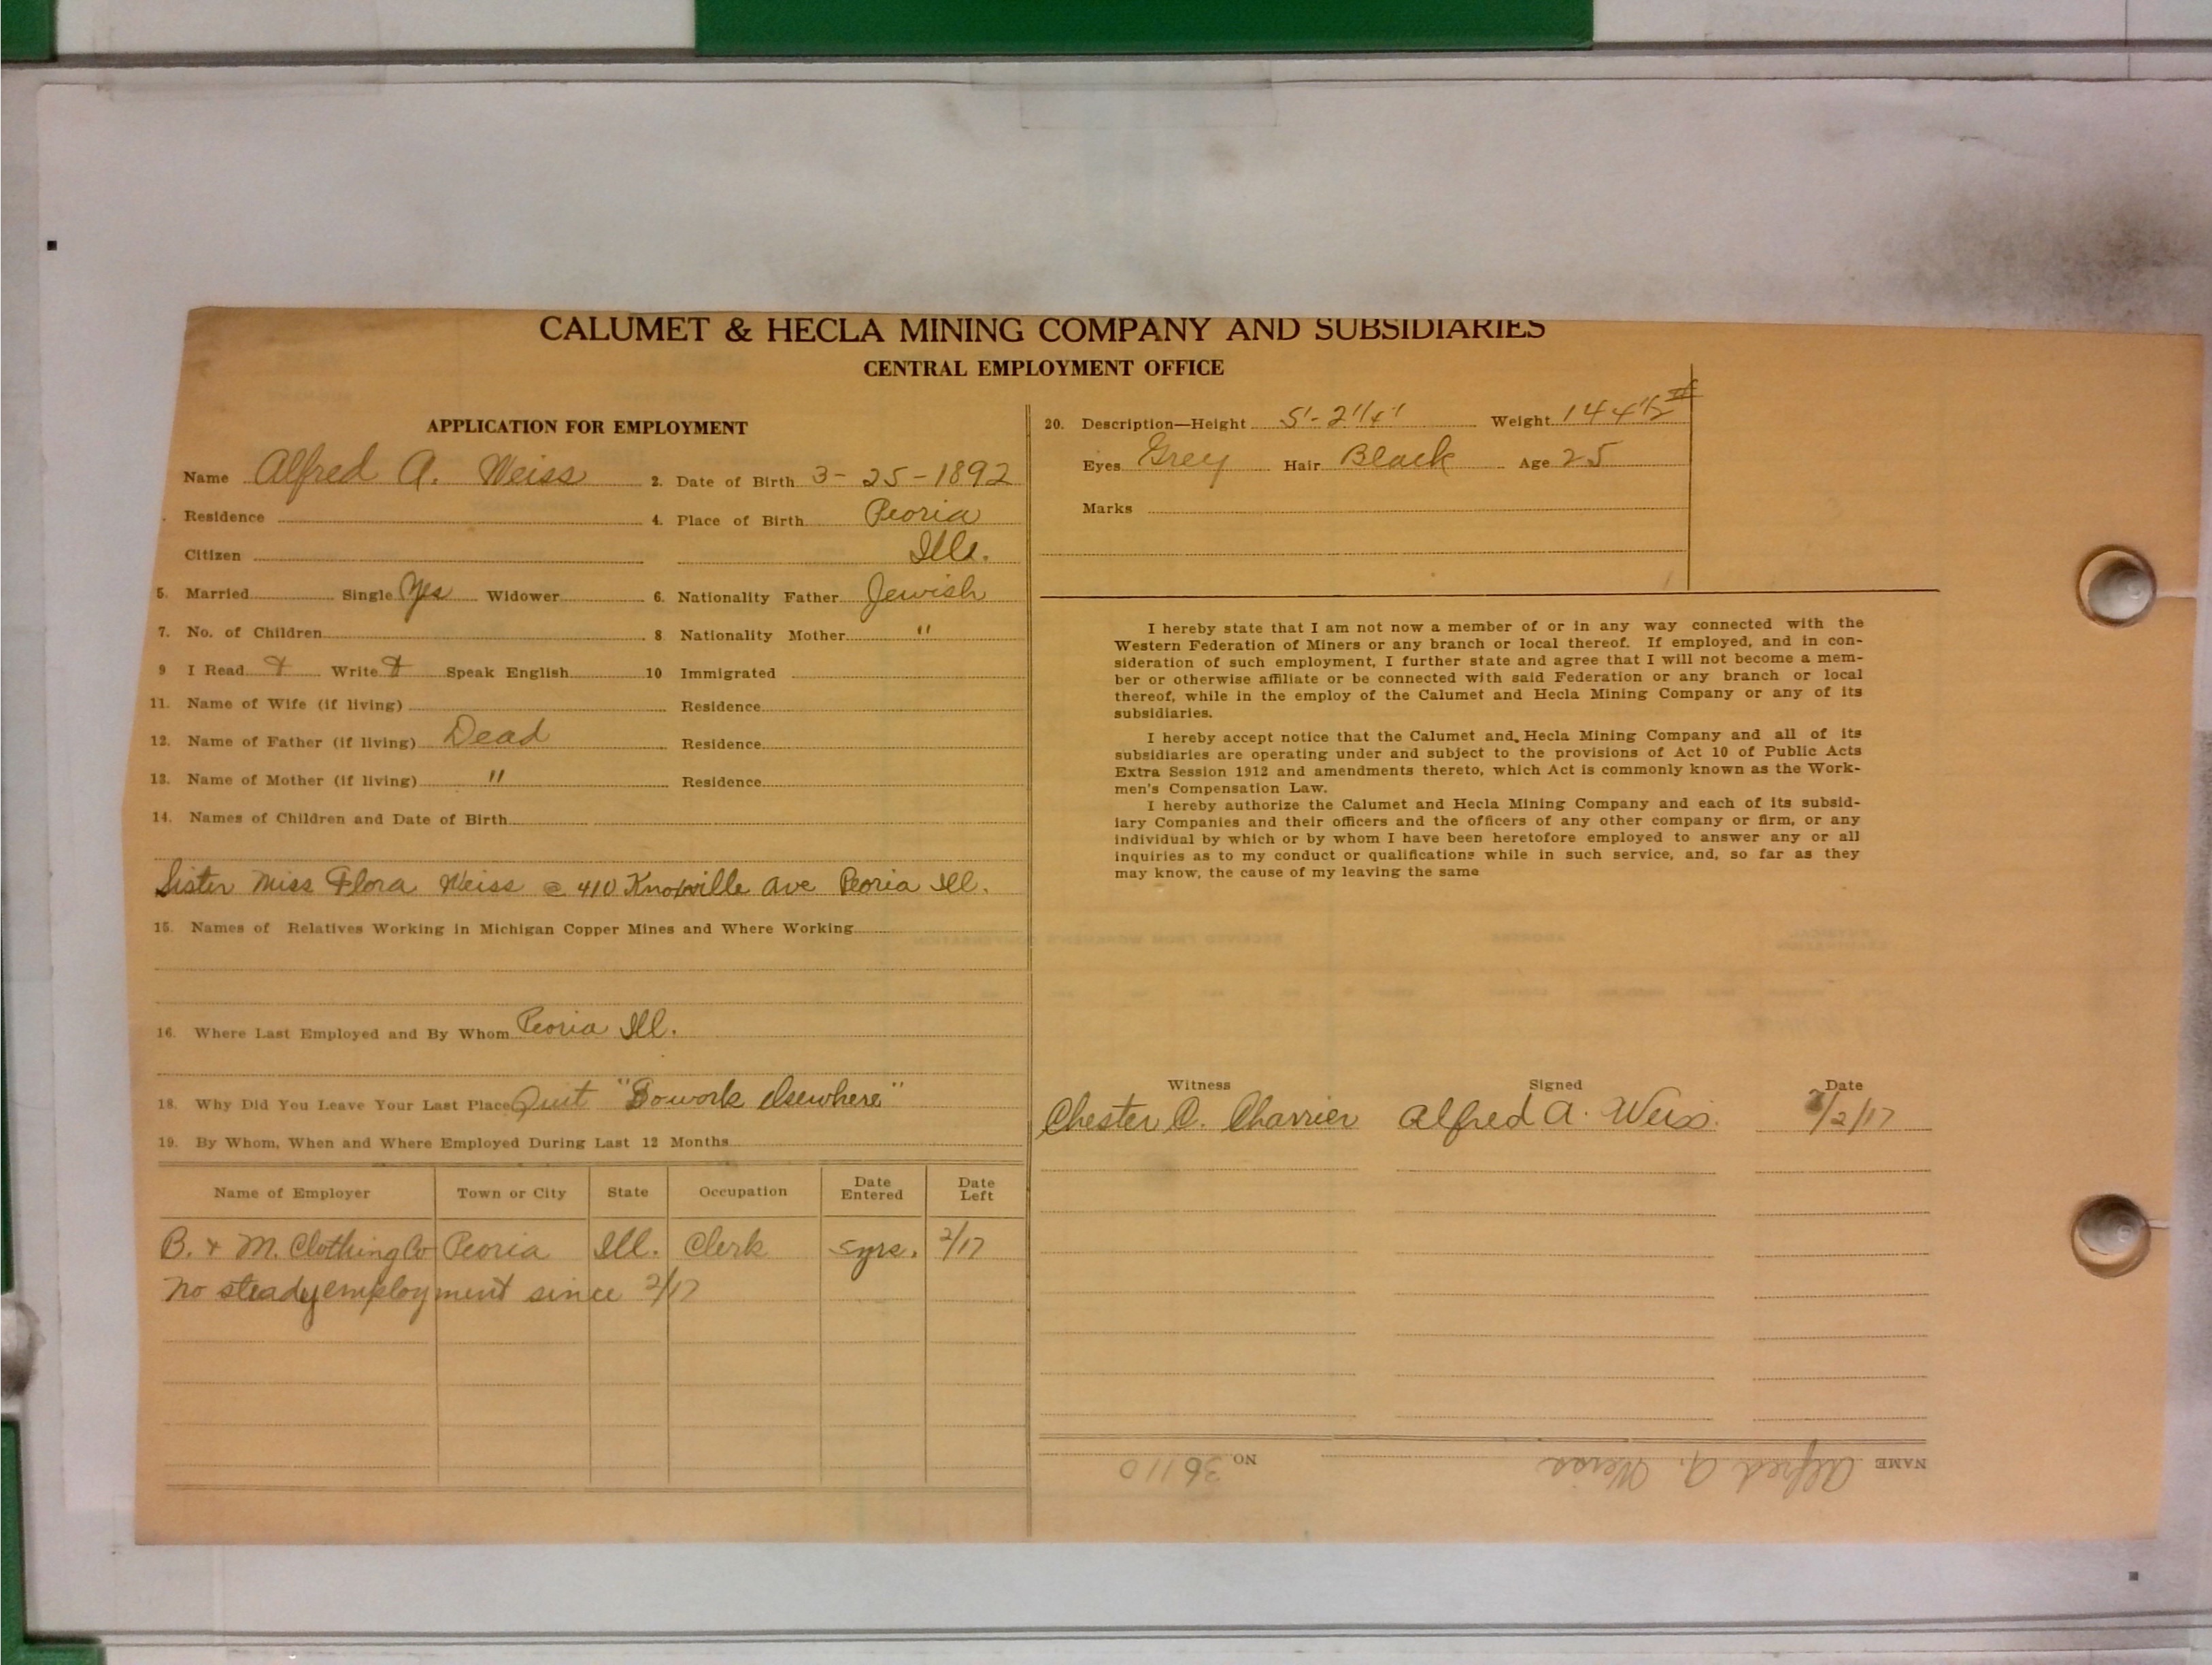 CALUMET & HECLA MINING COMPANY AND SUBSIDIARIES
CENTRAL EMPLOYMENT OFFICE
APPLICATION FOR EMPLOYMENT
Name Alfred A. Weiss 2. Date of Birth 3-25-1892
Residence 4. Place of Birth Peoria
Citizen Ills.
5. Married Single Yes Widower 6. Nationality Father Jewish
7. No. of Children 8 Nationality Mother "
9 I Read Write Speak English 10 Immigrated
11. Name of Wife (if living) Residence
12. Name of Father (if living) Dead Residence
13. Name of Mother (if living) " Residence
14. Names of Children and Date of Birth
Sister Miss Flora Weiss @ 410 Knoxville Ave Peoria Ill.
15. Names of Relatives Working in Michigan Copper Mines and Where Working
16. Where Last Employed and By Whom Peoria Ill.
18. Why Did You Leave Your Last Place Quit "To work elsewhere"
19. By Whom, When and Where Employed During Last 12 Months
Name of Employer Town or City State Occupation Date Entered Date Left
B. & M. Clothing Co Peoria Ill. Clerk 5 yrs. 2/17
No steady employment since 2/17
20. Description—Height 5'-2 1/4" Weight 144 1/2
Eyes Grey Hair Black Age 25
Marks
I hereby state that I am not now a member of or in any way connected with the
Western Federation of Miners or any branch or local thereof. If employed, and in con-
sideration of such employment, I further state and agree that I will not become a mem-
ber or otherwise affiliate or be connected with said Federation or any branch or local
thereof, while in the employ of the Calumet and Hecla Mining Company or any of its
subsidiaries.
I hereby accept notice that the Calumet and Hecla Mining Company and all of its
subsidiaries are operating under and subject to the provisions of Act 10 of Public Acts
Extra Session 1912 and amendments thereto, which Act is commonly known as the Work-
men's Compensation Law.
I hereby authorize the Calumet and Hecla Mining Company and each of its subsid-
iary Companies and their officers and the officers of any other company or firm, or any
individual by which or by whom I have been heretofore employed to answer any or all
inquiries as to my conduct or qualifications while in such service, and, so far as they
may know, the cause of my leaving the same
Witness Signed Date
Chester C. Charrier Alfred A. Weiss. /2/17
NAME Alfred A. Weiss NO. 36110